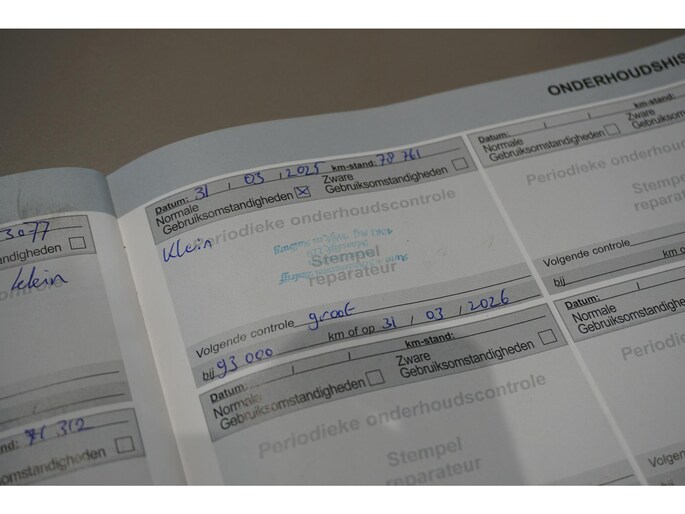 ONDERHOUDSHIS
3077
ndigheden
klein
nd: 71 312
omstandigheden
Datum: 31 / 03 / 2025 km-stand: 78 761
Normale Gebruiksomstandigheden
Zware Gebruiksomstandigheden
Periodieke onderhoudscontrole
Klein
Stempel
reparateur
Volgende controle groot
bij 93 000 km of op 31 / 03 / 2026
Datum: / / km-stand:
Normale Gebruiksomstandigheden
Zware Gebruiksomstandigheden
Periodieke onderhoudscontrole
Stempel
reparateur
Datum: / / km-stand:
Normale Gebruiksomstandigheden
Zware Gebruiksomstandigheden
Periodieke onderhoudscontrole
Stempel
reparateur
Volgende controle
bij km of op
Datum: / /
Normale Gebruiksomstandigheden
Periodieke
Volgende
bij